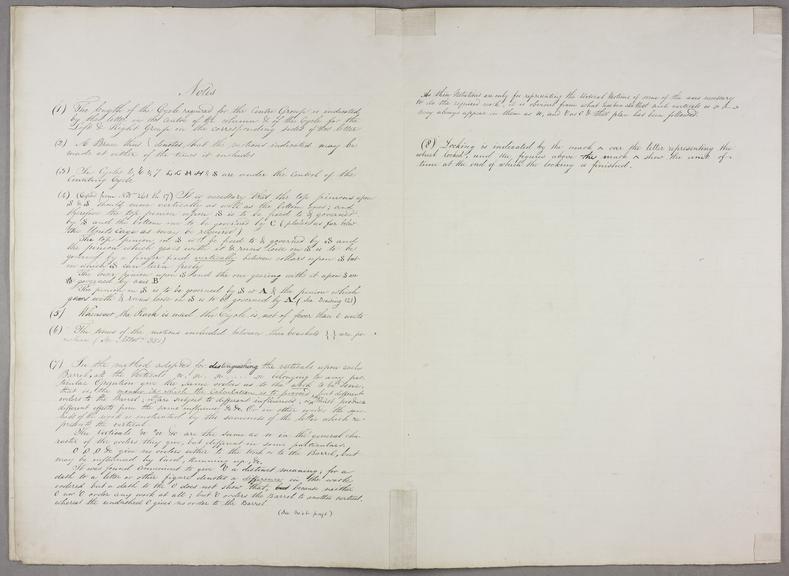 Notes
(1) The length of the Cycle required for the Centre Group is indicated
by the letter in the centre of the column & of the Cycle for the
Left & Right Group on the corresponding sides of this letter
(2) A Brace thus { denotes that the motions indicated may be
made at either of the times it includes
(3) The Cycles & 7 are under the control of the
Counting Cycle
(4) (Copied from It is necessary that the top pinions upon
S & S should move vertically as well as the bottom ones; and
therefore the top pinion upon S is to be fixed to & governed
by S and the bottom one to be governed by C (plates as far below
the Units Cage as may be required)
The top pinion on S is to be fixed to & governed by S and
the pinion which gears with it & runs loose on S is to be
governed by a finger fixed vertically between collars upon S but
in which S can turn freely
The over pinion upon S and the one gearing with it upon S are
governed by axis B
The pinion on S is to be governed by S or A & the pinion which
gears with & runs loose on S is to be governed by A (See Drawing 121)
(5) Whenever the Rack is used the Cycle is not of fewer than units
(6) The times of the motions included between these brackets { } are
(7) In the method adopted for distinguishing the verticals upon each
Barrel, all the Verticals belonging to any par-
ticular Operation give the same orders as to the work to be done,
that is, the manner in which the Calculation is to proceed, but different
orders to the Barrel; or are subject to different influences, or must produce
different effects from the same influences &c &c. Or in other words the same-
ness of the work is indicated by the sameness of the letter which re-
presents the vertical.
The verticals are the same as in the general cha-
racter of the orders they give, but different in some particulars.
0 0 0 &c give no orders either to the Work or to the Barrel, but
may be influenced by Card, Running up, &c.
It was found convenient to give 0 a distinct meaning; for a
dash to a letter or other figure denotes a difference in the work
ordered but a dash to the 0 does not show that, because neither
0 nor 0 order any work at all; but 0 orders the Barrel to another vertical,
whereas the undashed 0 gives no order to the Barrel
(See Next page)
As these Notations are only for representing the several Motions of some of the axes necessary
to do the required work, it is obvious from what has been stated that such verticals as
may always appear in them as and that plan has been followed.
(8) Locking is indicated by the mark ^ over the letter representing the
wheel locked; and the figures above the mark ^ show the unit of
time at the end of which the locking is finished.